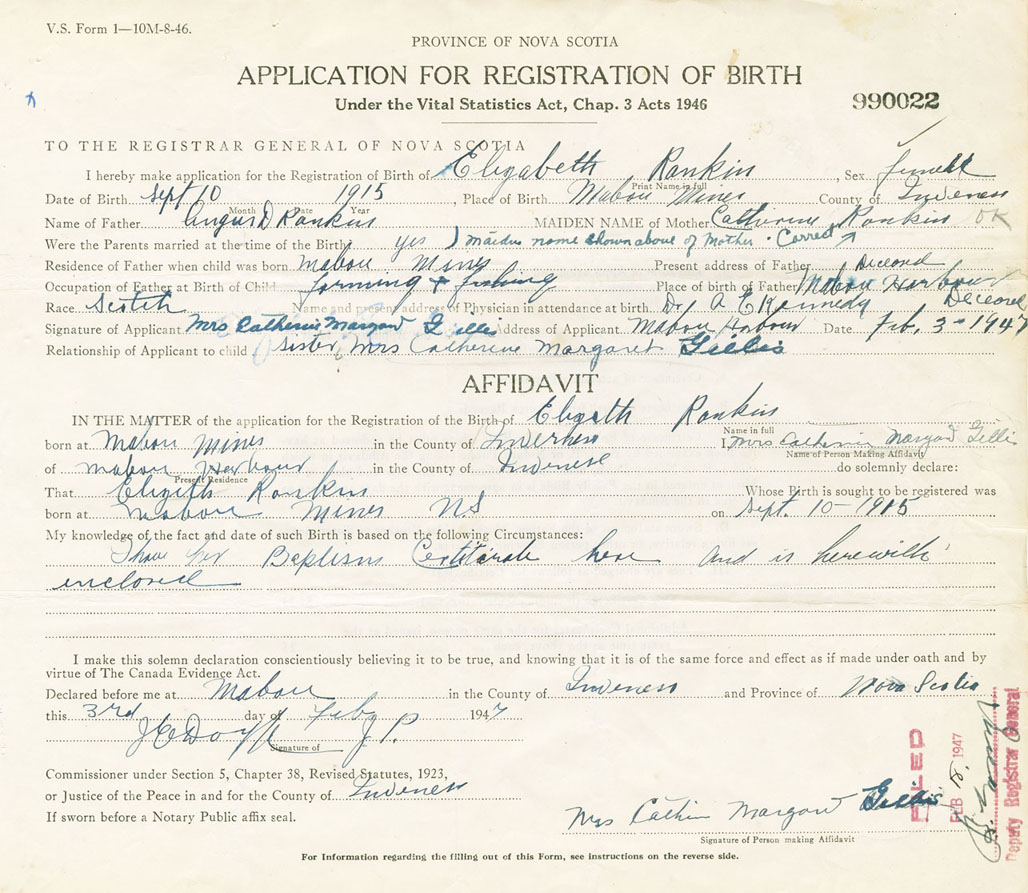 V.S. Form 1—10M-8-46.
PROVINCE OF NOVA SCOTIA
APPLICATION FOR REGISTRATION OF BIRTH
Under the Vital Statistics Act, Chap. 3 Acts 1946
990022
TO THE REGISTRAR GENERAL OF NOVA SCOTIA
I hereby make application for the Registration of Birth of Elizabeth Rankin, Sex
Print Name in full
Date of Birth Sept 10 1915, Place of Birth Mabou Mines County of Inverness
Month Date Year
Name of Father Angus D Rankin MAIDEN NAME of Mother Catherine Rankin OK
Were the Parents married at the time of the Birth yes ) Maiden name shown above of Mother. Correct
Residence of Father when child was born Mabou Mines Present address of Father Deceased
Occupation of Father at Birth of Child farming + fishing Place of birth of Father Mabou Harbour
Race Scotch Name and present address of Physician in attendance at birth Dr A E Kennedy Deceased
Signature of Applicant Mrs Catherin Margaret Gillis Address of Applicant Mabou Harbour Date Feb. 3- 1947
Relationship of Applicant to child Sister, Mrs Catherine Margaret Gillis
AFFIDAVIT
IN THE MATTER of the application for the Registration of the Birth of Rankin
Name in full
born at Mabou Mines in the County of Inverness I, Mrs Catherin Margaret Gillis
Name of Person Making Affidavit
of Mabou Harbour in the County of do solemnly declare:
Present Residence
That Rankin Whose Birth is sought to be registered was
born at Mabou Mines NS on Sept. 10-1915
My knowledge of the fact and date of such Birth is based on the following Circumstances:
I have her Baptism here and is herewith
enclosed
I make this solemn declaration conscientiously believing it to be true, and knowing that it is of the same force and effect as if made under oath and by
virtue of The Canada Evidence Act.
Declared before me at Mabou in the County of Inverness and Province of Nova Scotia
this 3rd day of Feby 1947
J C Doyle J.P.
Signature of
Commissioner under Section 5, Chapter 38, Revised Statutes, 1923,
or Justice of the Peace in and for the County of Inverness
If sworn before a Notary Public affix seal.
Mrs Gillis
Signature of Person making Affidavit
FILED
FEB 18 1947
Deputy Registrar General
For Information regarding the filling out of this Form, see instructions on the reverse side.